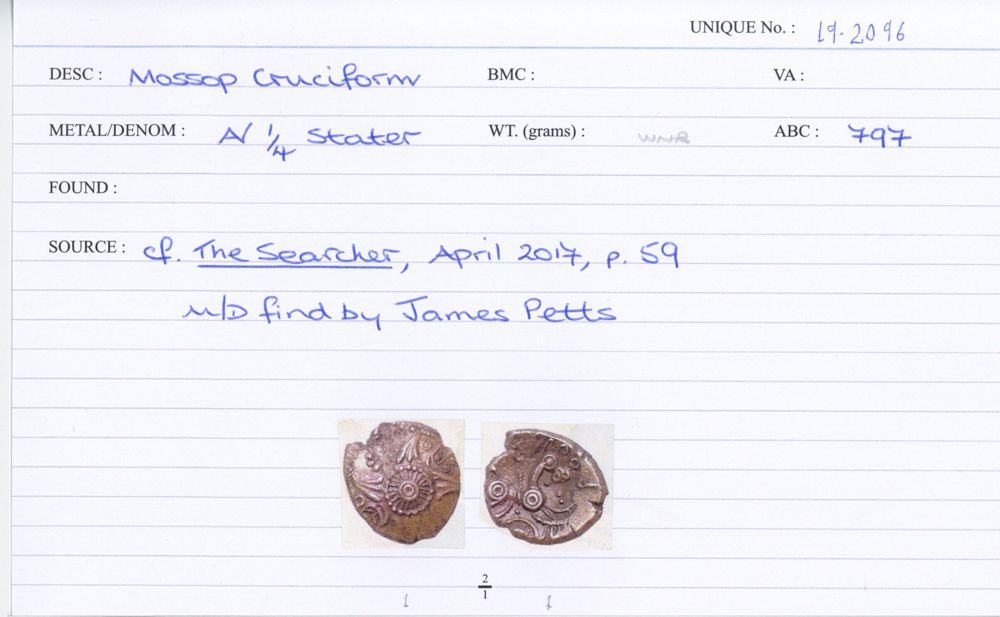 UNIQUE No. : 19.2096
DESC : Mossop Cruciform BMC : VA :
METAL/DENOM : A/ 1/4 Stater WT. (grams) : WNR ABC : 797
FOUND :
SOURCE : cf. The Searcher, April 2017, p. 59
M/D find by James Petts
2/1
1 1